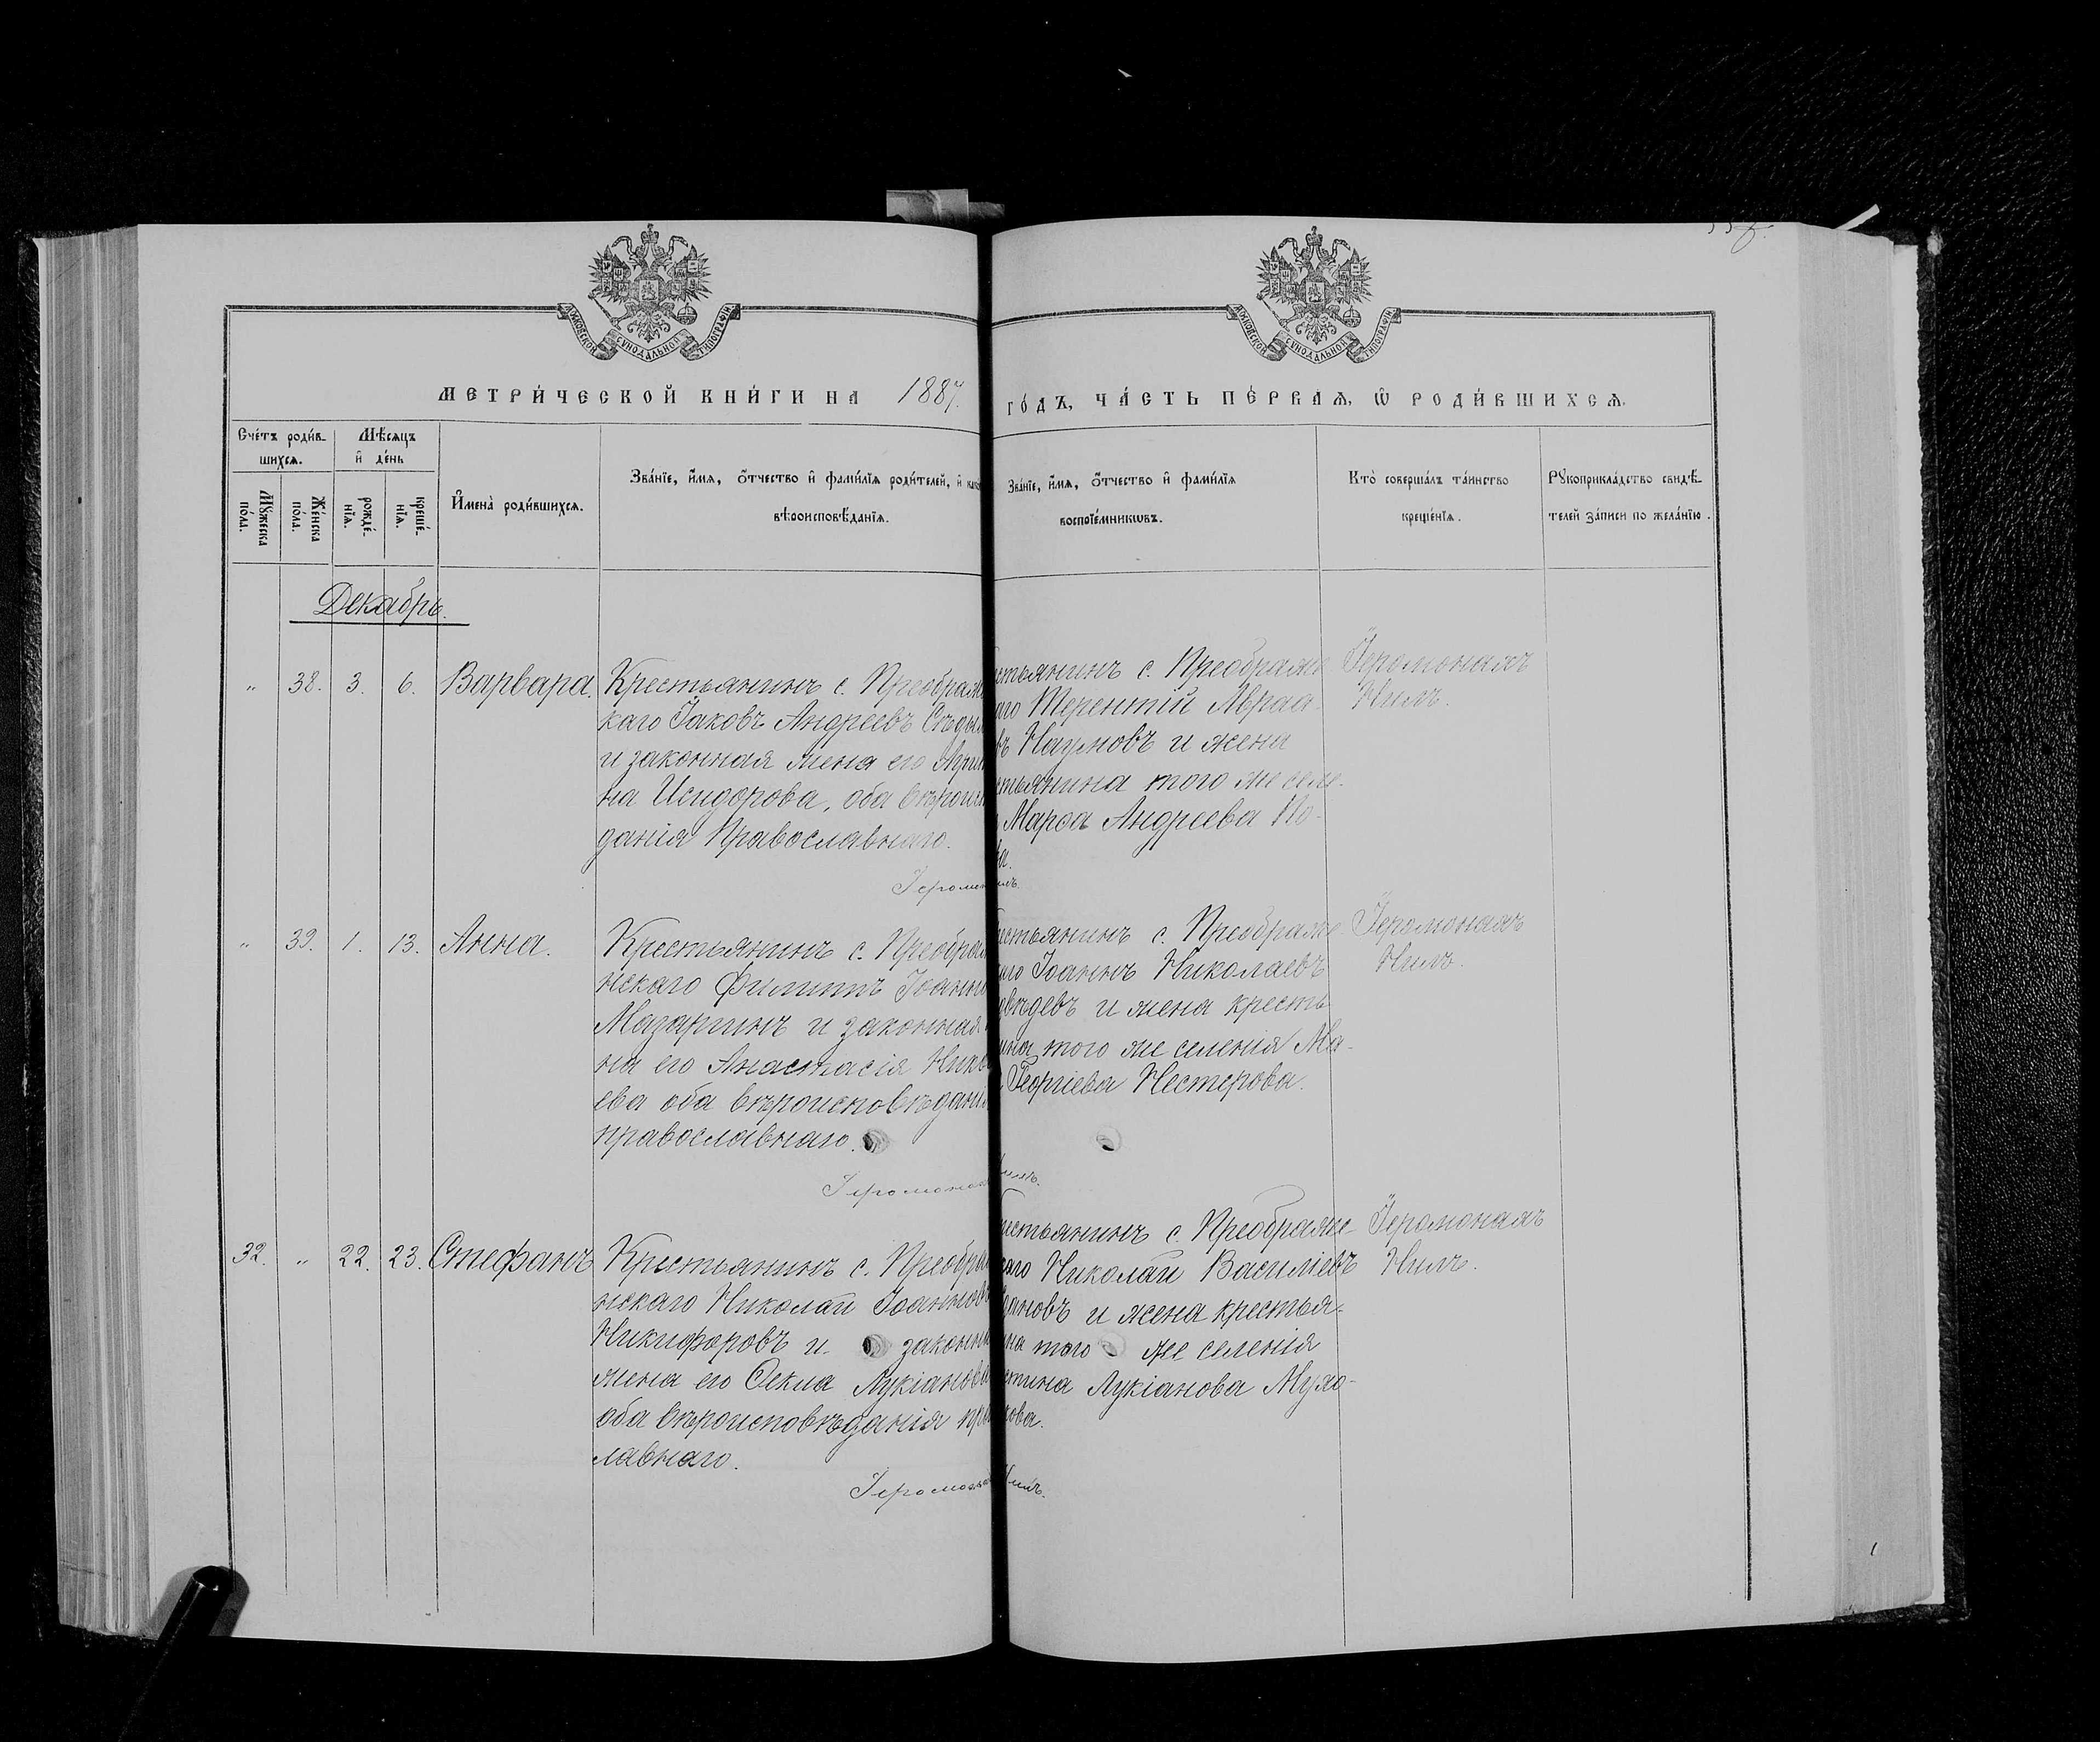 МОСКОВСКОЙ СУНОДАЛЬНОЙ ТИПОГРАФІИ
МОСКОВСКОЙ СУНОДАЛЬНОЙ ТИПОГРАФІИ
МЕТРИ́ЧЕСКОЙ КНИ́ГИ НА 1887.
ГО́ДЪ, ЧА́СТЬ ПЕ́РВАѦ, Ѡ҆ РОДИ́ВШИХСѦ.
Сче́тъ роди́в-
шихсѧ.
Мѣ́сѧцъ
и҆ де́нь
Мꙋ́жеска
по́ла.
Же́нска
по́ла.
рожде́-
нїѧ.
креще́-
нїѧ.
И҆мена̀ роди́вшихсѧ.
Зва́нїе, и҆́мѧ, ѻ҆́тчество и҆ фами́лїѧ роди́телей, и҆
вѣроисповѣ́данїѧ.
Зва́нїе, и҆́мѧ, ѻ҆́тчество и҆ фами́лїѧ
воспрїе́мникѡвъ.
Кто̀ соверша́лъ та́инство
креще́нїѧ.
Рꙋкоприкла́дство свидѣ́-
телей за́писи по жела́нїю.
Декабрь.
" 38. 3. 6. Варвара.
Крестьянинъ с. Преображ
каго Іаковъ Андреевъ
и законная жена его Ири
на Исидорова, оба вѣроисп
данія Православнаго.
Іеромон
стьянинъ с. Преображе
аго Терентій Авраа-
въ Наумовъ и жена
стьянина того же селе-
Марѳа Андреева По-
ва.
илъ.
Іеромонахъ
Нилъ.
" 39. 1. 13. Анна.
Крестьянинъ с. Преобра
нскаго Филиппъ Іоанн
Мазаргинъ и законная
на его Анастасія Нико
ева оба вѣроисповѣдані
православнаго.
Іеромона
естьянинъ с. Преображе
аго Іоаннъ Николаевъ
двѣдевъ и жена кресть
ина того же селенія Ма-
Георгіева Нестерова.
Нилъ.
Іеромонахъ
Нилъ.
32. " 22. 23. Стефанъ
Крестьянинъ с. Преобра
нскаго Николай Іоаннов
Никифоровъ и законна
жена его Ѳекла Лукіанова
оба вѣроисповѣданія пра
лавнаго.
Іеромона
естьянинъ с. Преображе-
каго Николай Василіевъ
дановъ и жена крестья-
на того же селенія
стина Лукіанова Мухо-
рова.
Нилъ.
Іеромонахъ
Нилъ.